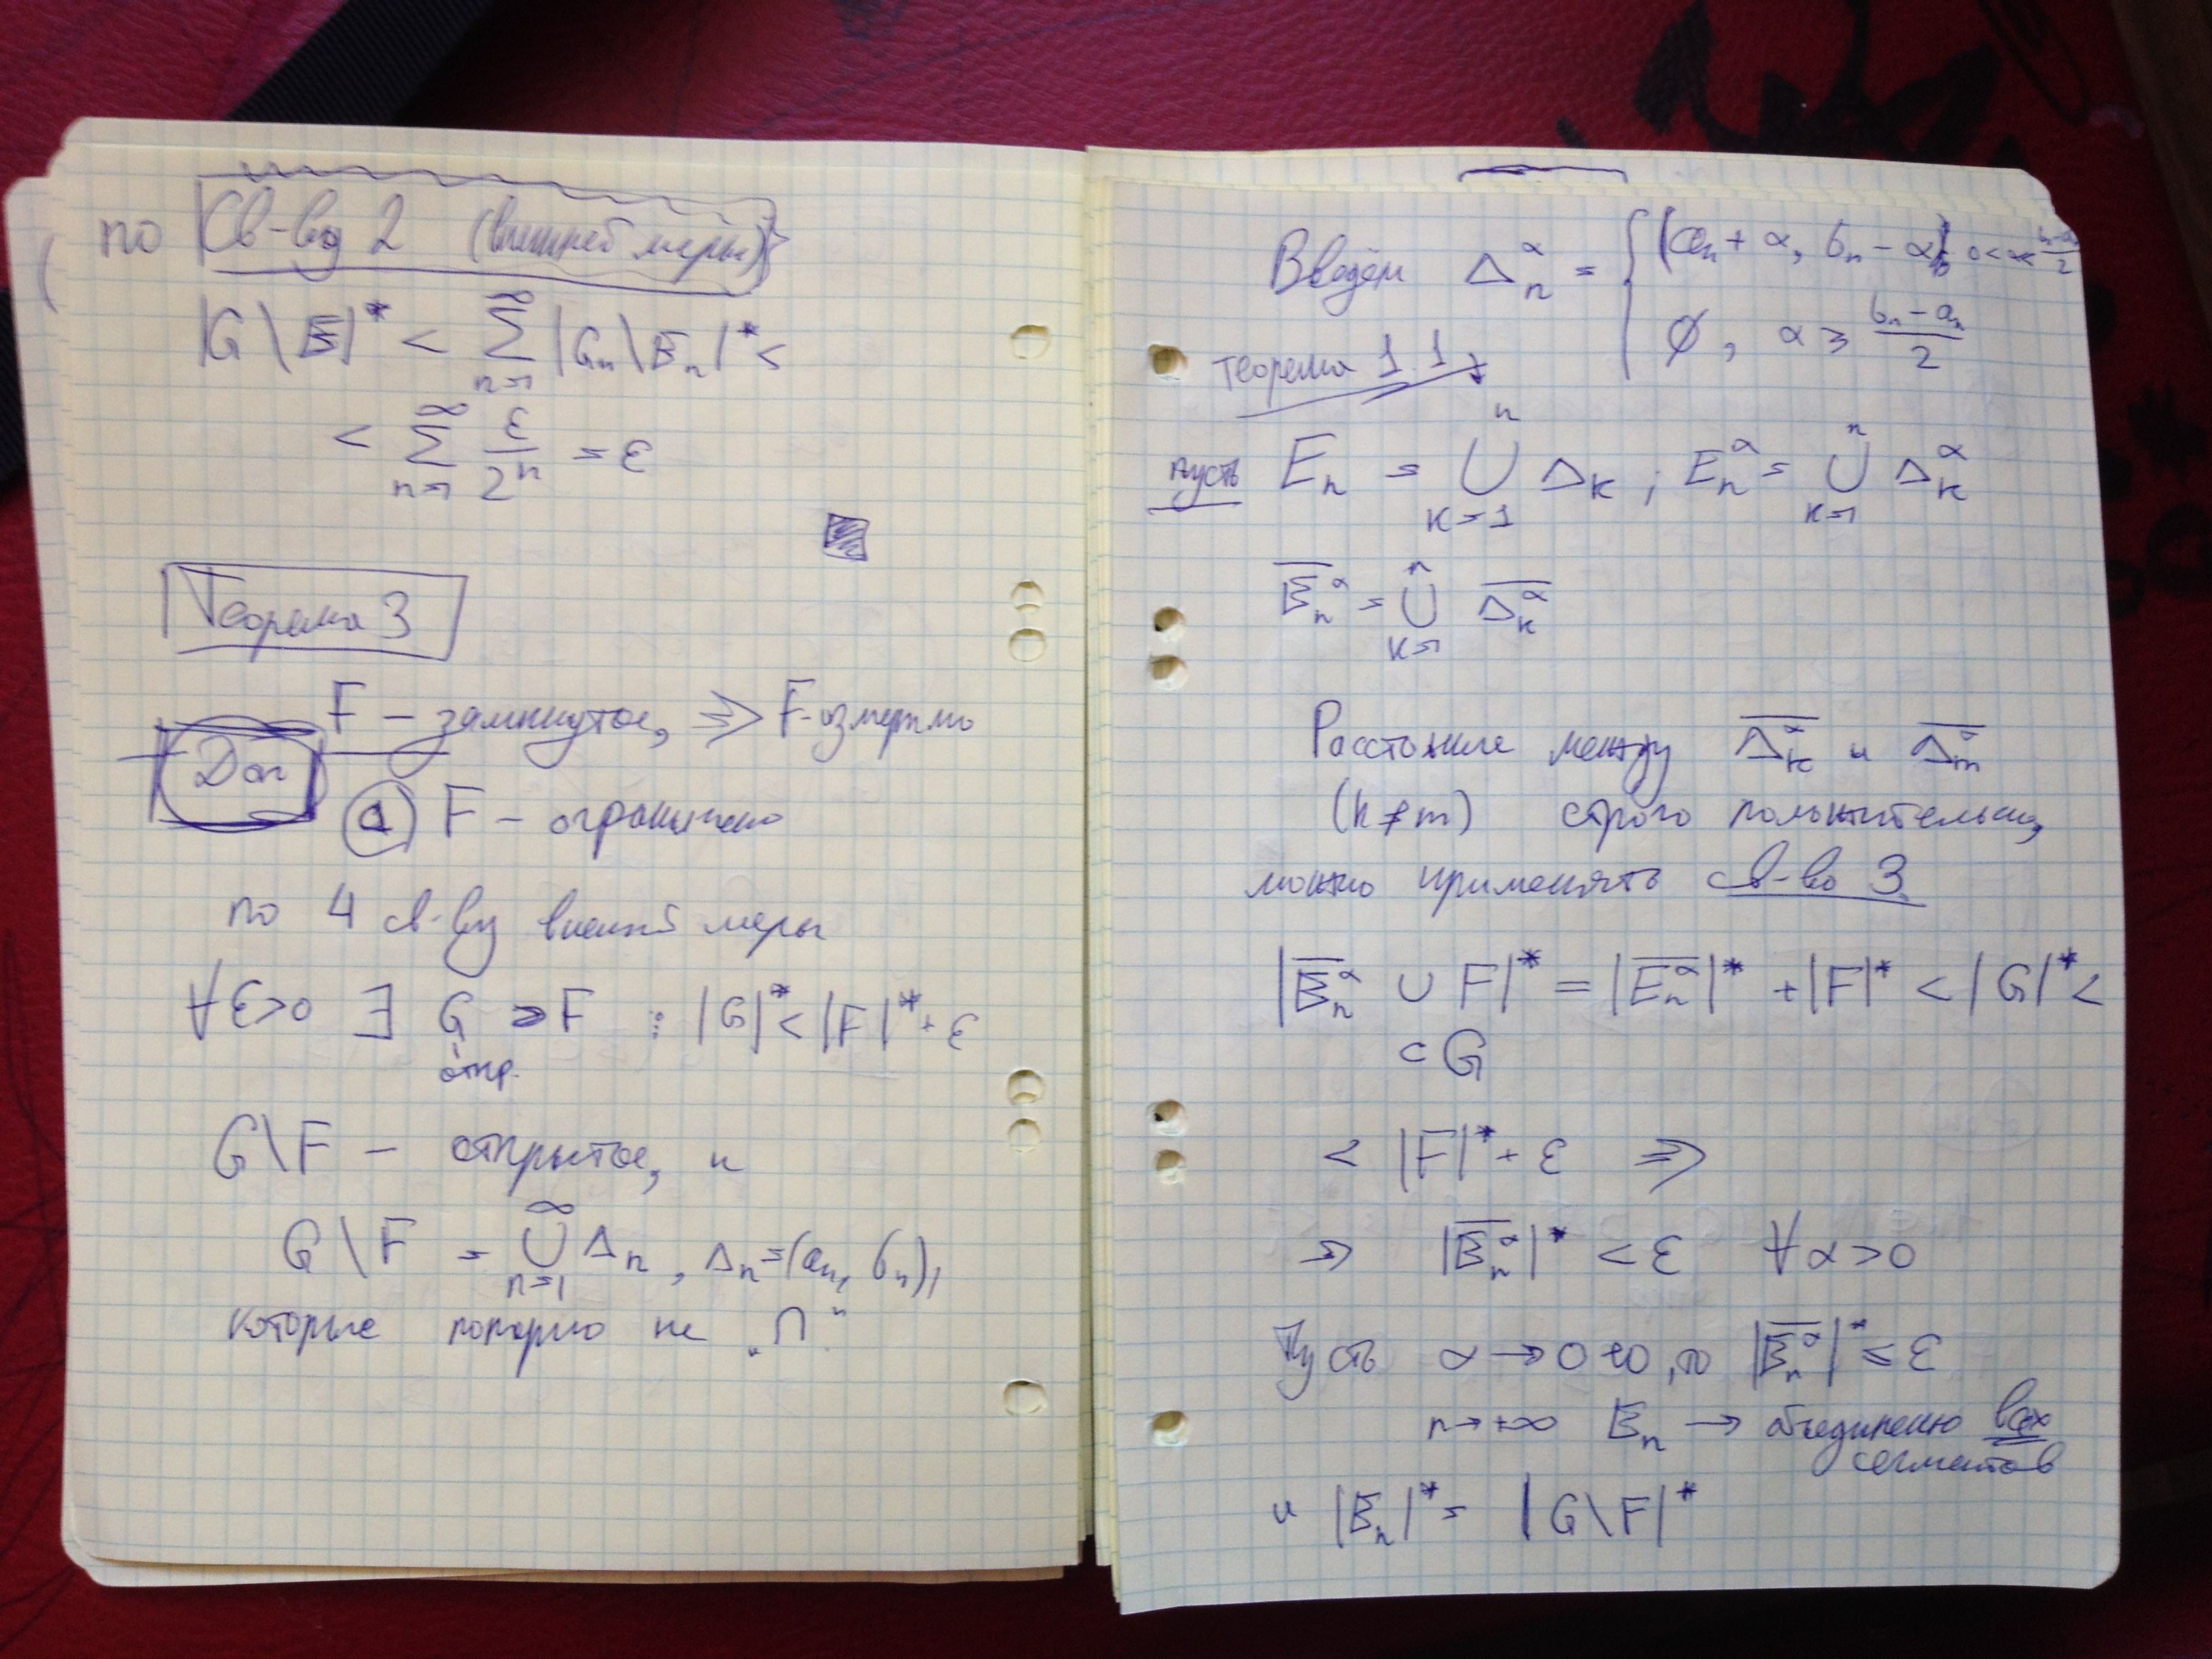 по Св-ву 2 (внешней меры)
|G \ E|* < ∑_{n=1}^{∞} |G_n \ E_n|* <
< ∑_{n=1}^{∞} ε/2^n = ε
Теорема 3
F – замкнутое, ⇒ F-измеримо
Док
а) F – ограничено
по 4 св-ву внешней меры
∀ε>0 ∃ G ⊃ F : |G|* < |F|* + ε
откр.
G\F – открытое, и
G\F = ⋃_{n=1}^{∞} Δ_n, Δ_n = (a_n, b_n),
которые попарно не „∩“
Введём Δ_n^α = { (a_n + α, b_n – α), 0<α<(b_n–a_n)/2
∅, α ⩾ (b_n – a_n)/2
теорема 1.1
пусть E_n = ⋃_{k=1}^{n} Δ_k ; E_n^α = ⋃_{k=1}^{n} Δ_k^α
\overline{E_n^α} = ⋃_{k=1}^{n} \overline{Δ_k^α}
Расстояние между \overline{Δ_k^α} и \overline{Δ_m^α}
(k ≠ m) строго положительно,
можно применять св-во 3.
|\overline{E_n^α} ∪ F|* = |\overline{E_n^α}|* + |F|* < |G|* <
⊂ G
< |F|* + ε ⇒
⇒ |\overline{E_n^α}|* < ε ∀α>0
Пусть α → 0+0, то |\overline{E_n^α}|* ⩽ ε
n → +∞ E_n → объединению всех
сегментов
и |E_n|* = |G\F|*